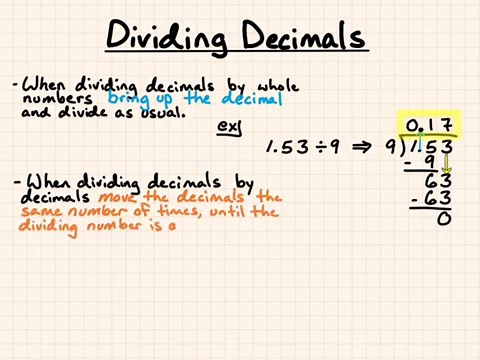 Dividing Decimals
- When dividing decimals by whole
numbers bring up the decimal
and divide as usual.
ex)
1.53 ÷ 9 ⇒ 9)1.53
0.17
- 9
63
- 63
0
- When dividing decimals by
decimals move the decimals the
same number of times, until the
dividing number is a